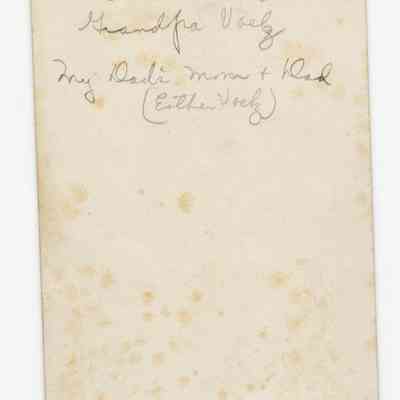 Grandpa Voelz
My Dad's mom + Dad
(Esther Voelz)